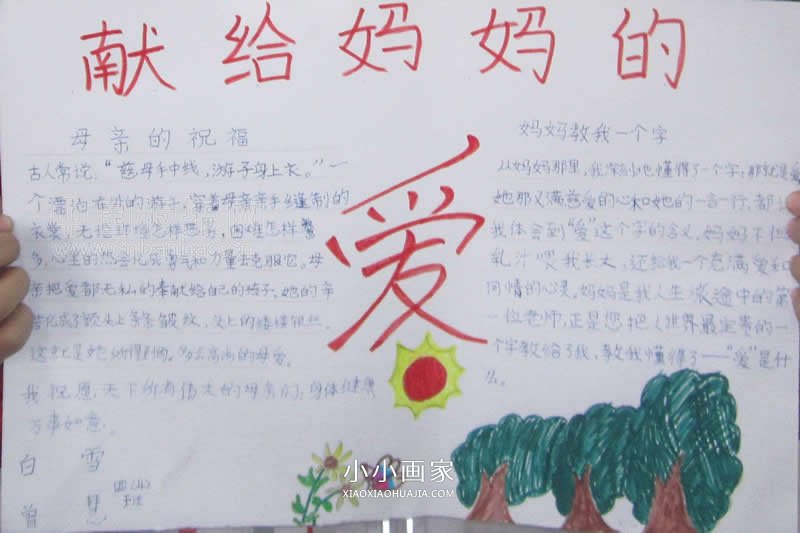 献给妈妈的
爱
母亲的祝福
古人常说，“慈母手中线，游子身上衣。”一
个漂泊在外的游子，穿着母亲亲手缝制的
衣裳，无论环境怎样恶劣，困难怎样繁
多，心里的热会化成勇气和力量去克服它。母
亲把爱都无私的奉献给自己的孩子，她的辛
苦化成了额头上条条皱纹，头上的缕缕银丝。
这就是她纳得到的。多么高尚的母爱。
我祝愿天下所有伟大的母亲们：身体健康
万事如意。
白雪
曾
四(4)
班
妈妈教我一个字
从妈妈那里，我深刻地懂得了一个字：那就是爱
她那又满慈爱的心和她的一言一行，都
我体会到“爱”这个字的含义，妈妈不但
乳汁喂我长大，还给我一个充满爱和
同情的心灵。妈妈是我人生旅途中的第
一位老师，正是您把人世界最宝贵的一
个字教给了我，教我懂得了——“爱”是什
么。
小小画家
XIAOXIAOHUAJIA.COM